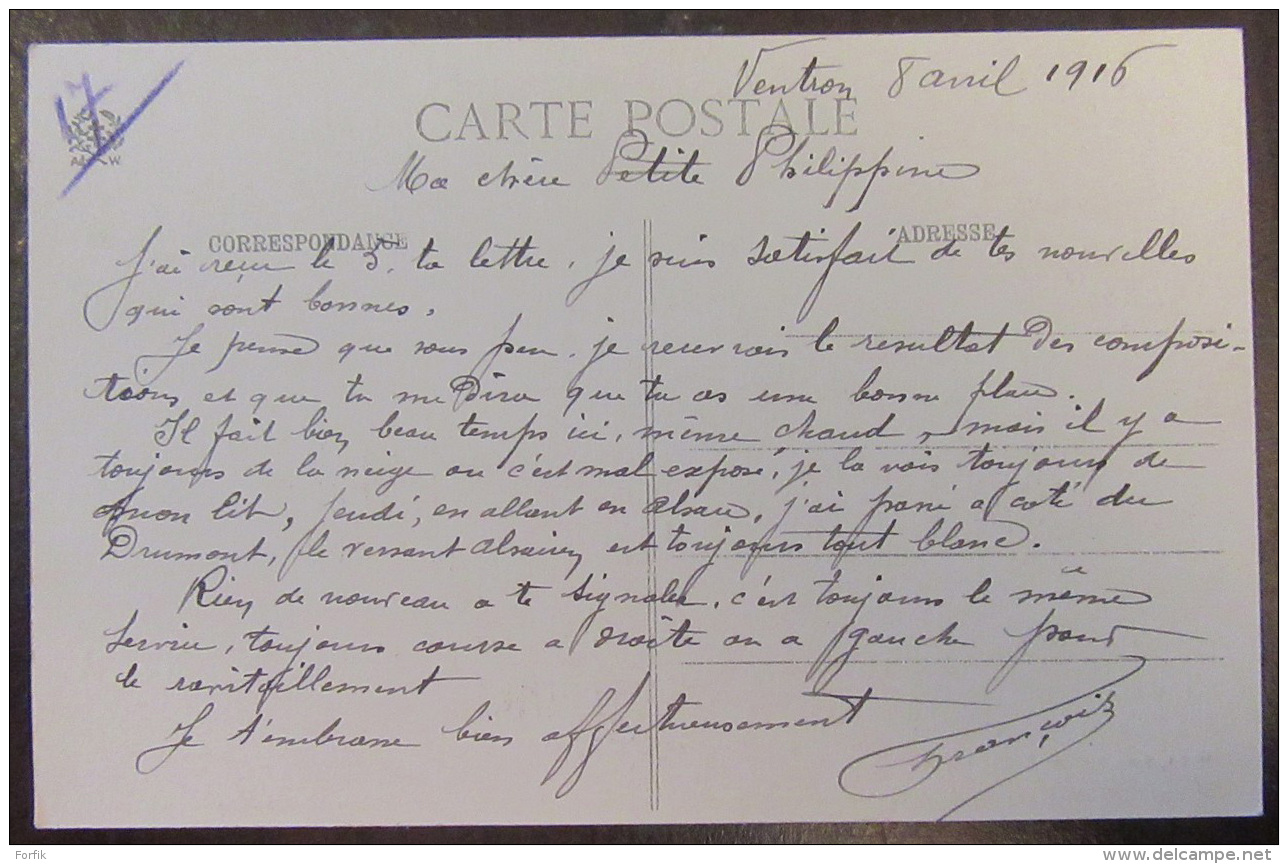 Ventron 8 avril 1916
17
CARTE POSTALE
A W
Ma chère Petite Philippine
CORRESPONDANCE
ADRESSE
J'ai reçu le 5, ta lettre, je suis satisfait de tes nouvelles
qui sont bonnes.
Je pense que sous peu, je recevrais le resultat des composi-
tions et que tu me dira que tu as une bonne place.
Il fait bien beau temps ici, même chaud, mais il y a
toujours de la neige ou c'est mal exposé, je la vois toujours de
mon lit, Jeudi, en allant en Alsace, j'ai passé a coté du
Drumont, le versant alsacien est toujours tout blanc.
Rien de nouveau a te signaler, c'est toujours le même
service, toujours course a droite ou a gauche pour
le ravitaillement
Je t'embrasse bien affectueusement
François
Forfik
www.delcampe.net